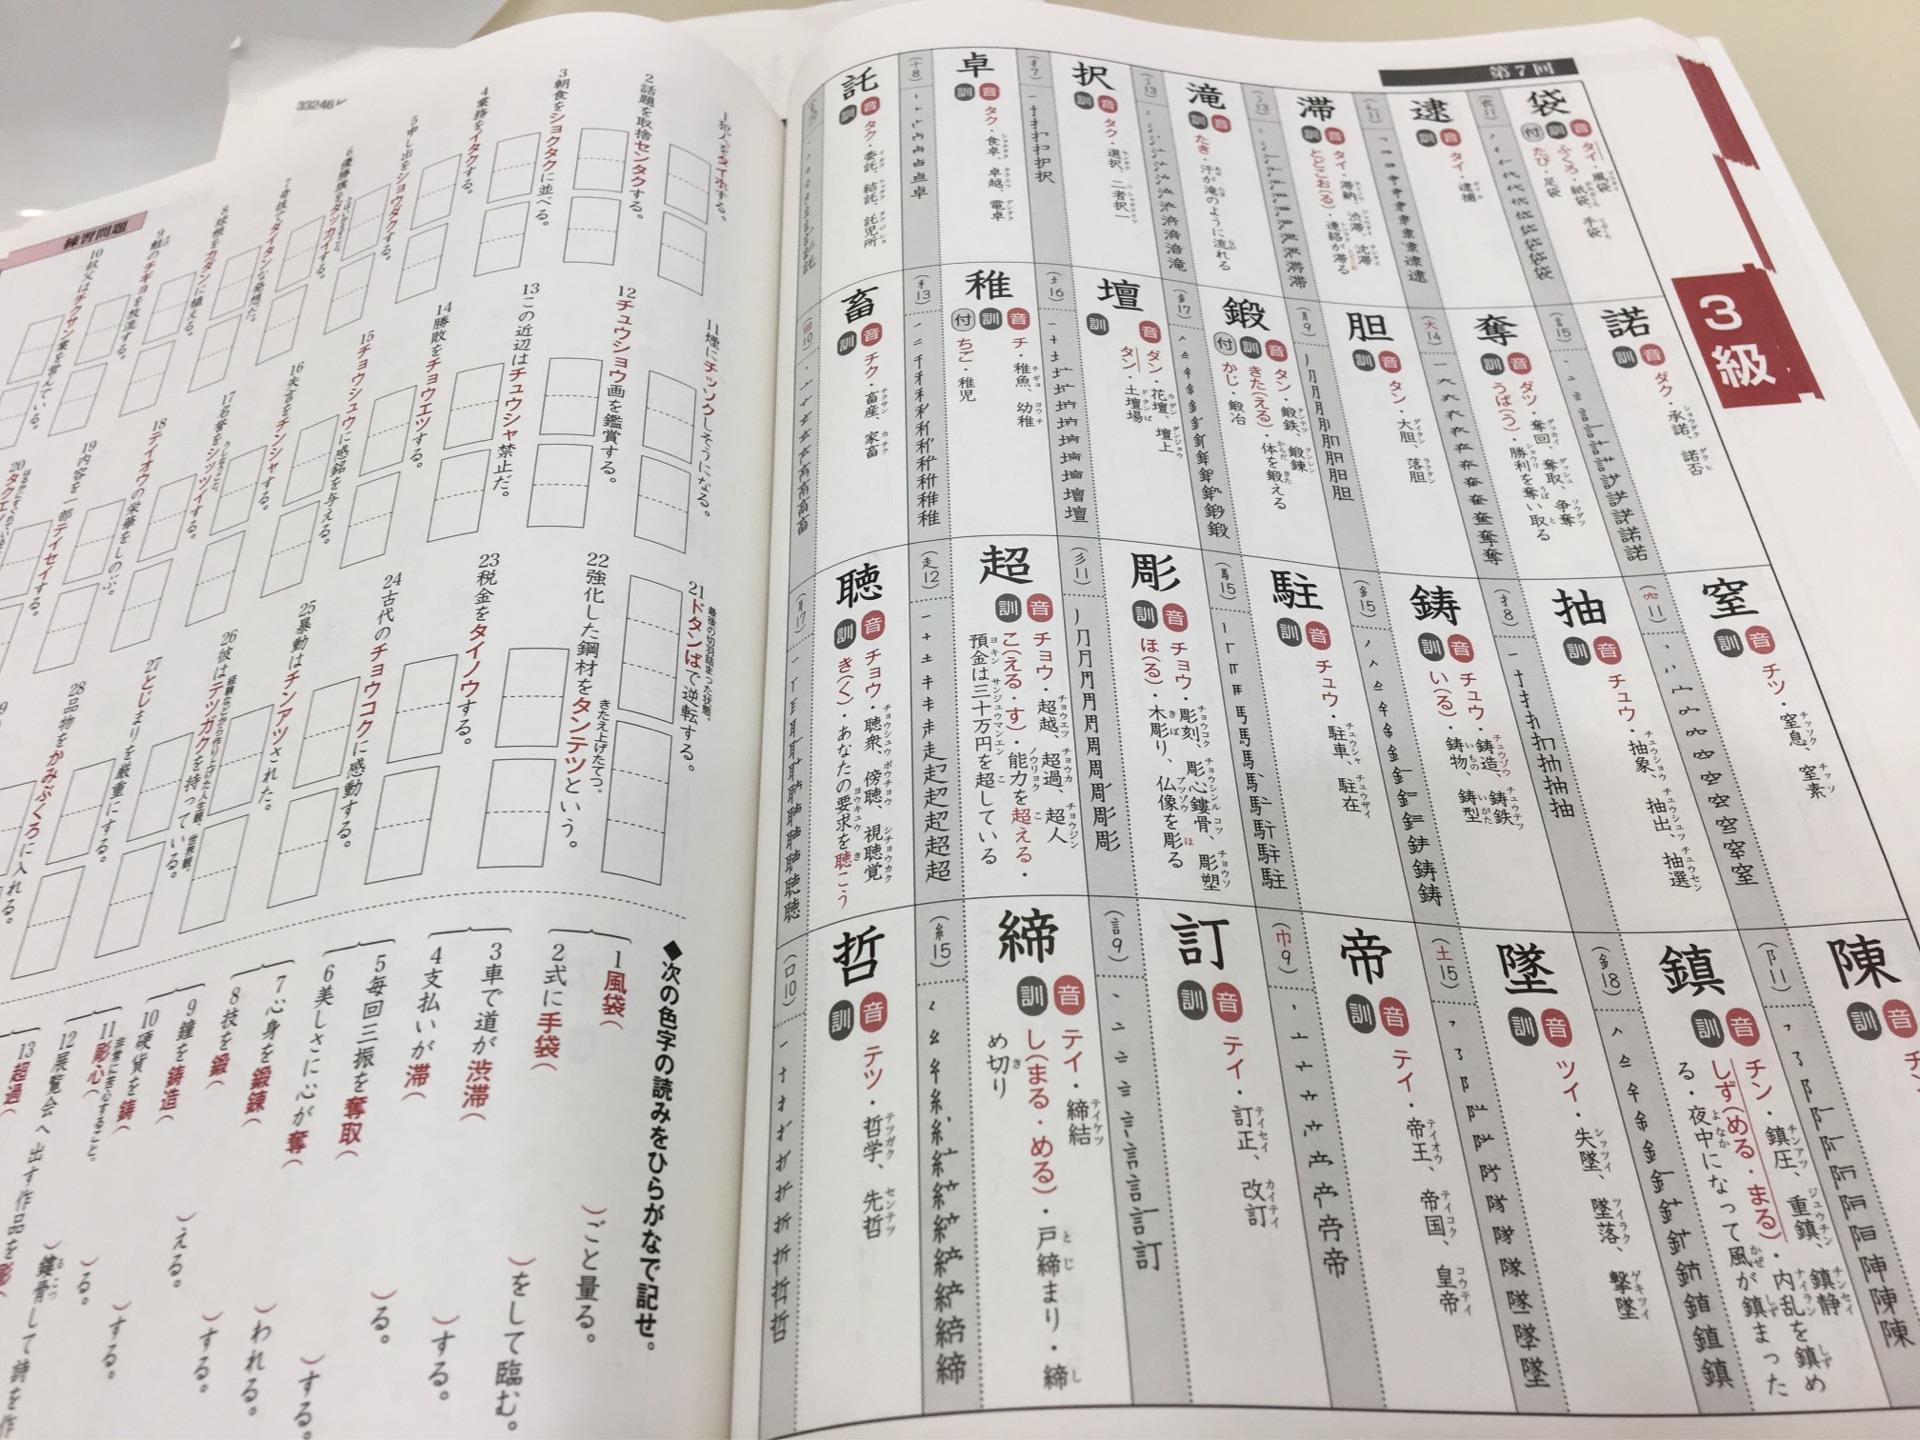 第7回
3級
袋 音 訓 付 タイ・風袋 ふくろ・紙袋、手袋 たび・足袋
逮 音 訓 タイ・逮捕
滞 音 訓 タイ・滞納、渋滞、沈滞 とどこお(る)・連絡が滞る
滝 音 訓 たき・汗が滝のように流れる
択 音 訓 タク・選択、二者択一
卓 音 訓 タク・食卓、卓越、電卓
託 音 訓 タク・委託、結託、託児所
諾 音 訓 ダク・承諾、諾否
奪 音 訓 ダツ・奪回、奪取、争奪 うば(う)・勝利を奪い取る
胆 音 訓 タン・大胆、落胆
鍛 音 訓 付 タン・鍛鉄、鍛錬 きた(える)・体を鍛える かじ・鍛冶
壇 音 訓 ダン・花壇、壇上 タン・土壇場
稚 音 訓 付 チ・稚魚、幼稚 ちご・稚児
畜 音 訓 チク・畜産、家畜
窒 音 訓 チツ・窒息、窒素
抽 音 訓 チュウ・抽象、抽出、抽選
鋳 音 訓 チュウ・鋳造、鋳鉄 い(る)・鋳物、鋳型
駐 音 訓 チュウ・駐車、駐在
彫 音 訓 チョウ・彫刻、彫心鏤骨、彫塑 ほ(る)・木彫り、仏像を彫る
超 音 訓 チョウ・超越、超過、超人 こ(える・す)・能力を超える・預金は三十万円を超している
聴 音 訓 チョウ・聴衆、傍聴、視聴覚 き(く)・あなたの要求を聴こう
陳 音 訓
鎮 音 訓 チン・鎮圧、重鎮、鎮静 しず(める・まる)・内乱を鎮める・夜中になって風が鎮まった
墜 音 訓 ツイ・失墜、墜落、撃墜
帝 音 訓 テイ・帝王、帝国、皇帝
訂 音 訓 テイ・訂正、改訂
締 音 訓 テイ・締結 し(まる・める)・戸締まり・締め切り
哲 音 訓 テツ・哲学、先哲
練習問題
2 話題を取捨センタクする。
3 朝食をショクタクに並べる。
4 業務をイタクする。
5 申し出をショウダクする。
6 優勝旗をダッカイする。
8 球根をカダンに植える。
9 鮭のチギョを放流する。
10 叔父はチクサン業を営んでいる。
11 煙にチッソクしそうになる。
12 チュウショウ画を鑑賞する。
13 この近辺はチュウシャ禁止だ。
14 勝敗をチョウエツする。
15 チョウシュウに感銘を与える。
16 失言をチンシャする。
17 名誉をシッツイする。
18 テイオウの栄華をしのぶ。
19 内容を一部テイセイする。
21 ドタンばで逆転する。
22 強化した鋼材をタンテツという。
23 税金をタイノウする。
24 古代のチョウコクに感動する。
25 暴動はチンアツされた。
26 彼はテツガクを持っている。
27 とじまりを厳重にする。
28 品物をかみぶくろに入れる。
◆次の色字の読みをひらがなで記せ。
1 風袋( )ごと量る。
2 式に手袋( )をして臨む。
3 車で道が渋滞( )する。
4 支払いが滞( )る。
5 毎回三振を奪取( )する。
6 美しさに心が奪( )われる。
7 心身を鍛錬( )する。
8 技を鍛( )える。
9 鐘を鋳造( )する。
10 硬貨を鋳( )る。
11 彫心( )鏤骨して詩を作
12 展覧会へ出す作品を彫
13 超過(